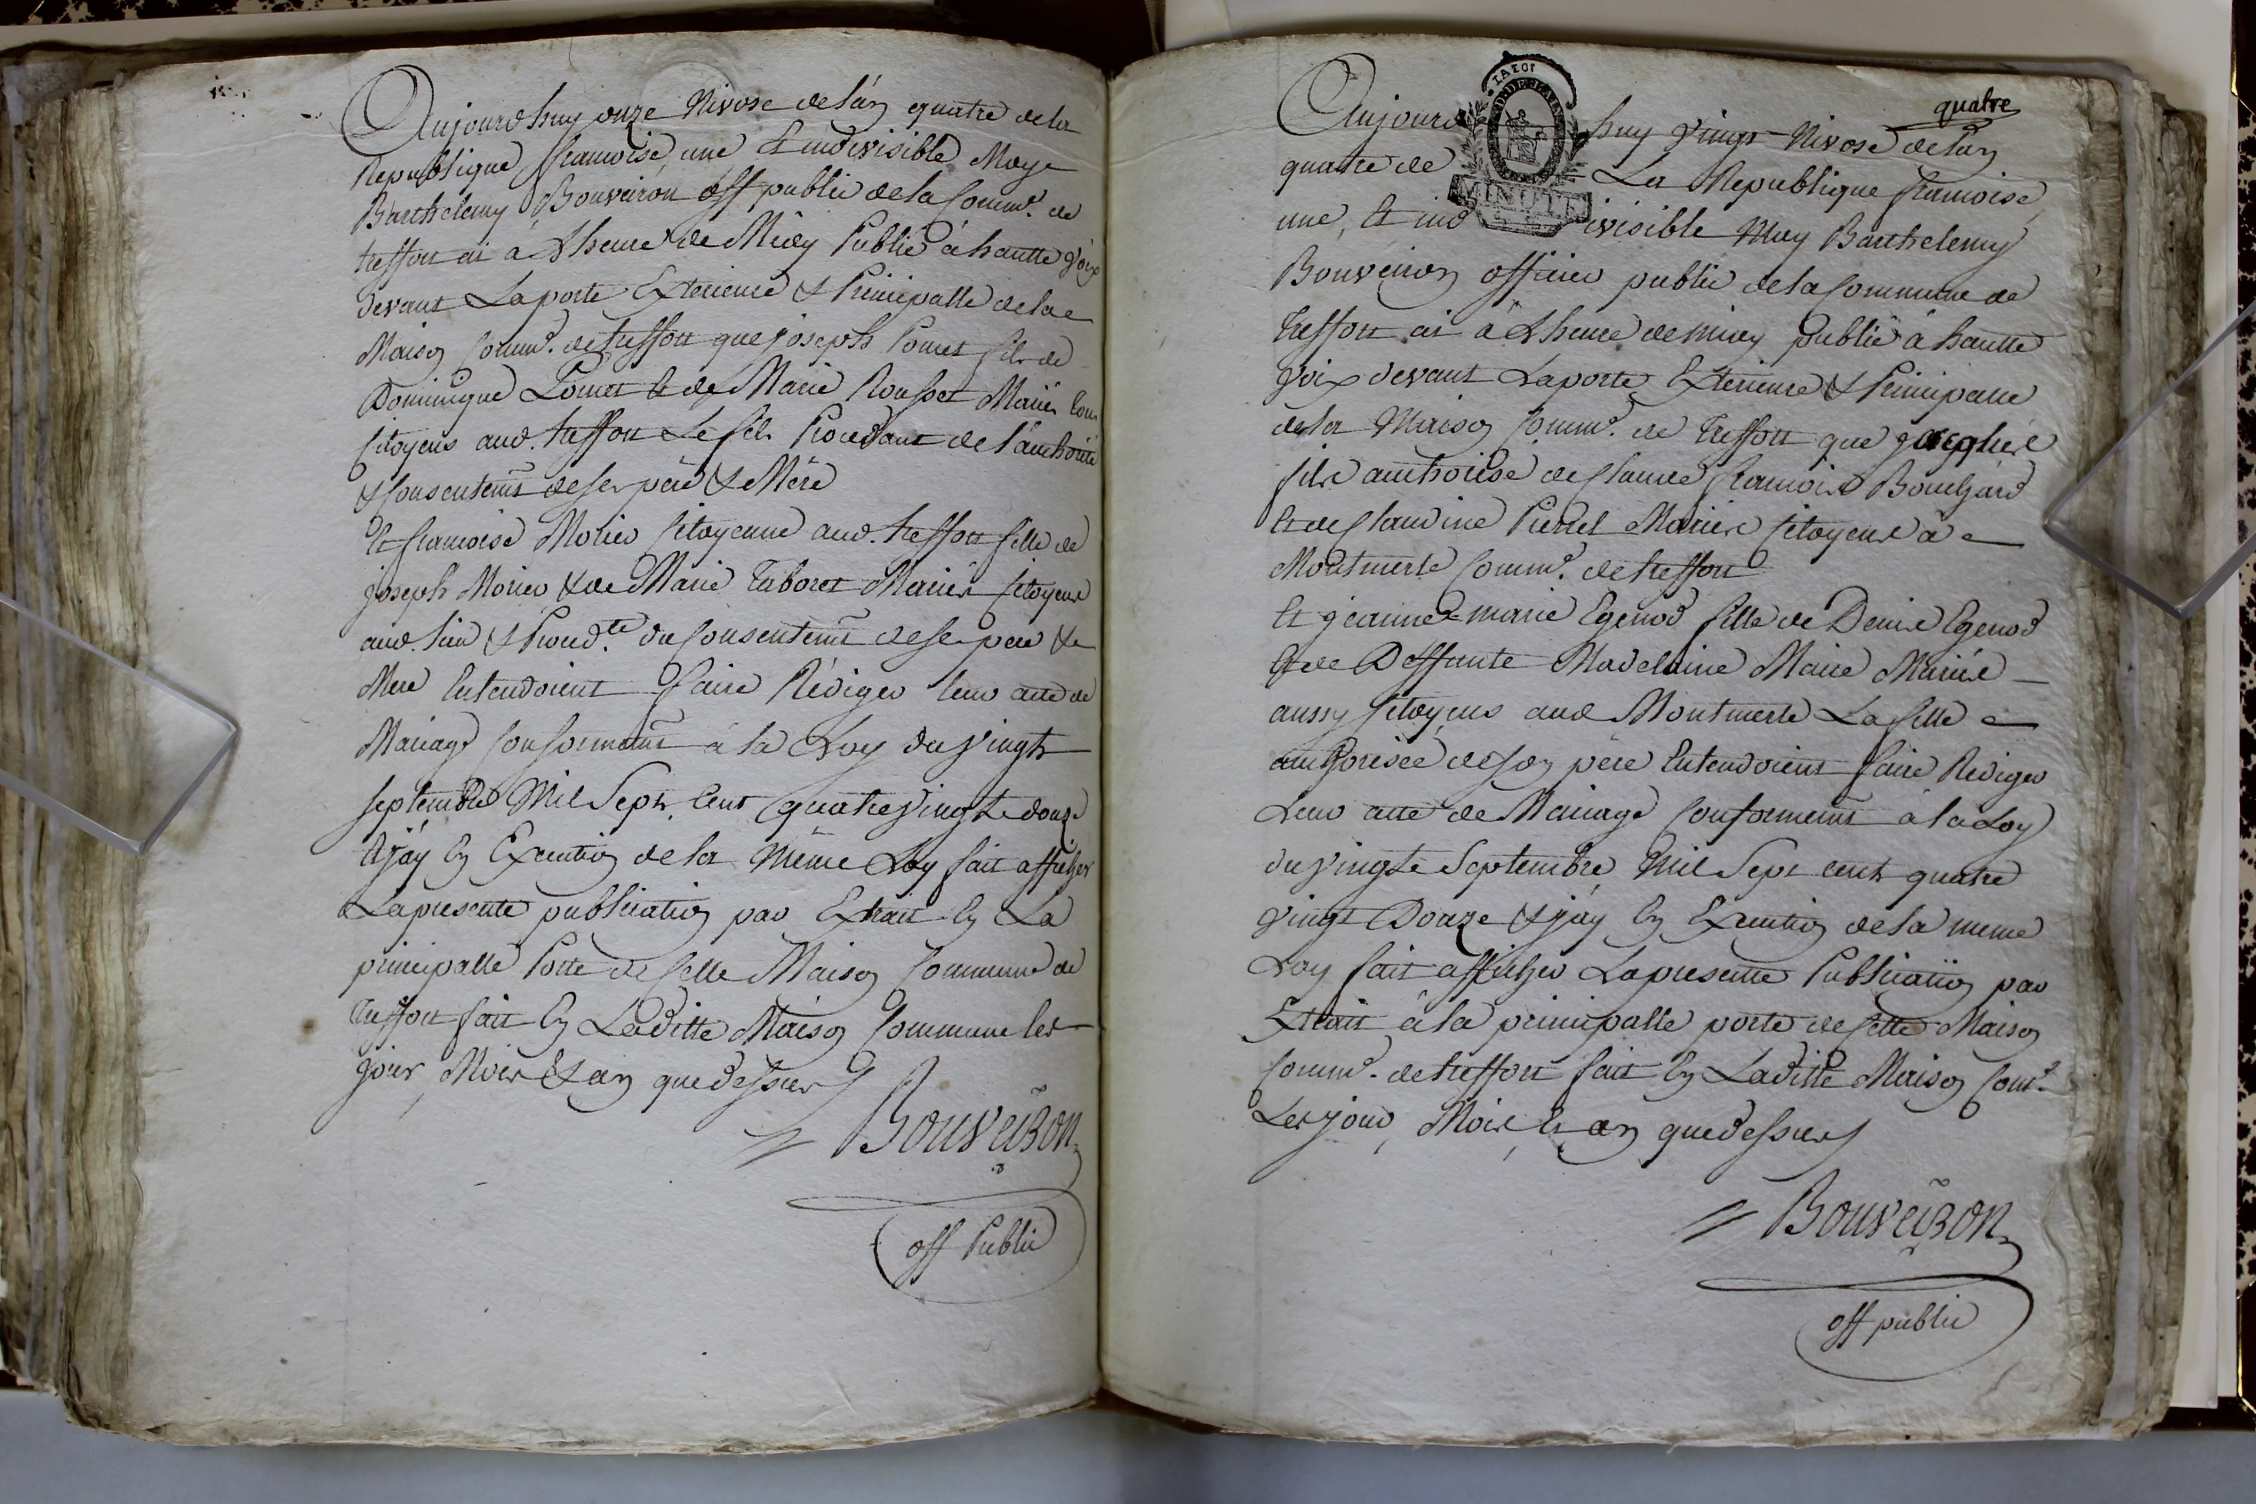 Aujourdhuy onze Nivose de l'an quatre de la
Republique francoise, une & indivisible Moy
Barthelemy Bouveiron off public de la Comm.e de
treffort ai à L heure de Midy Publié à hautte Voix
devant La porte Exterieure & Principalle de la
Maison Comm.e de treffort que joseph Pomet fils de
Dominique Pomet & de Marie Rousset Mariés tous
Citoyens aud. treffort Le fils Procedant de l'authorité
& Consentemt de ses père & Mére
Et francoise Morier Citoyenne aud. treffort fille de
joseph Morier & de Marie Taboret Mariés Citoyens
aud. lieu & Proced.te du Consentemt de ses pere &
Mere Entendoient faire Rédiger leur acte de
Mariage Conformémt à la Loy du Vingts
septembre Mil Sept Cent quatre Vingts douze
& j'ay En Execution de la Même Loy fait afficher
La presente publication par Extrait En La
principalle Porte de Cette Maison Commune de
Treffort fait En Laditte Maison Commune les
jour, Mois & an que dessus
Bouveiron
off Public
quatre
Aujourdhuy Vingt Nivose de l'an
quatre de La Republique francoise,
une, Et indivisible Moy Barthelemy
Bouveiron officier public de la Commune de
Treffort ai à L heure de midy publié à hautte
Voix devant La porte Exterieure & Principalle
de la Maison Comm.e de Treffort que
fils authorisé de Claude francois Bouchard
Et de Claudine Mariés Citoyens à
Montmerle Comm.e de treffort
Et jeanne marie Egenod fille de Denis Egenod
Et de Deffunte Madelaine Maire Mariés
aussy Citoyens aud Montmerle La fille
authorisée de son père Entendoient faire Rédiger
Leur acte de Mariage Conformemt à la Loy
du Vingts Septembre Mil Sept cents quatre
Vingt Douze & j'ay En Execution de la meme
Loy fait afficher La presente Publication par
Extrait à la principalle porte de Cette Maison
Comm.e de treffort fait En Laditte Maison Com.e
Les jour, Mois, & an que dessus
Bouveiron
off public